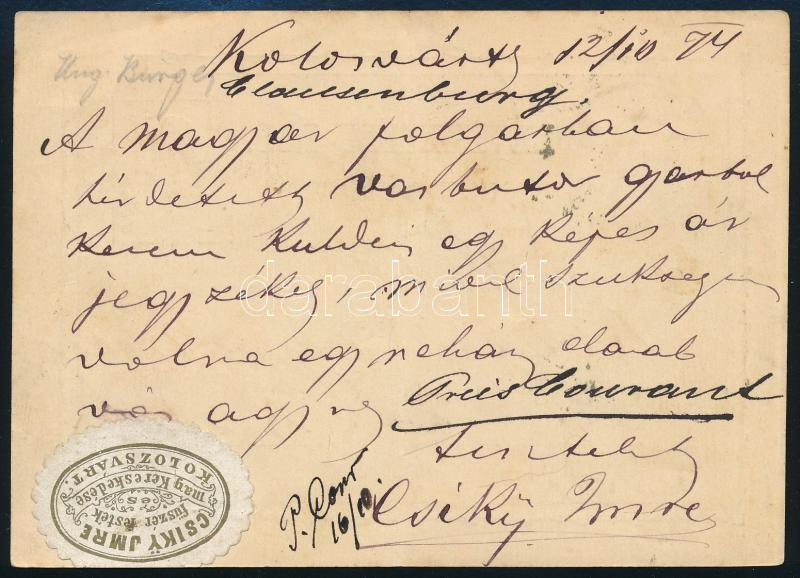 Kolosvárt 12/10 74
Ung. Burge
Clausenburg.
A magyar polgarban
hirdetett vasbutor gyarbol
kerem kuldeni egy kepes ár
jegyzéket, mivel szuksegem
volna egy nehány darab
vas agyra Preis Courant
tisztelettel
Csikÿ Imre
P. Cour
16/10.
CSIKŸ JMRE
füszer festék
és
mag kereskedése
KOLOZSVÁRT.
darabanth